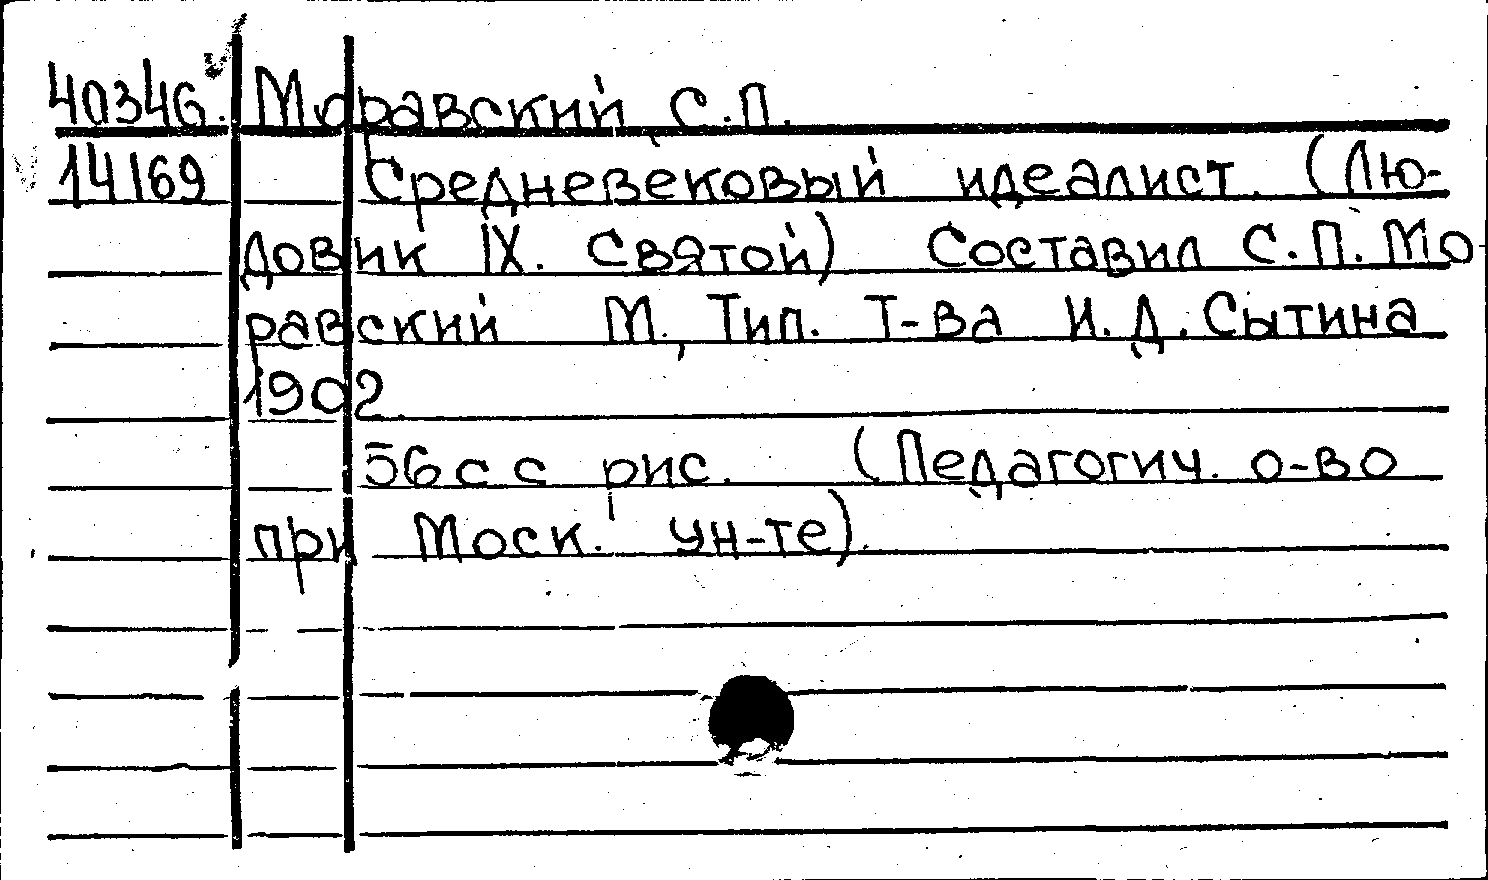 40346. Моравский С.П.
14169 Средневековый идеалист. (Лю-
довик IX. Святой) Составил С.П. Мо-
равский М., Тип. Т-ва И.Д. Сытина
1902.
56 с с рис. (Педагогич. о-во
при Моск. ун-те).